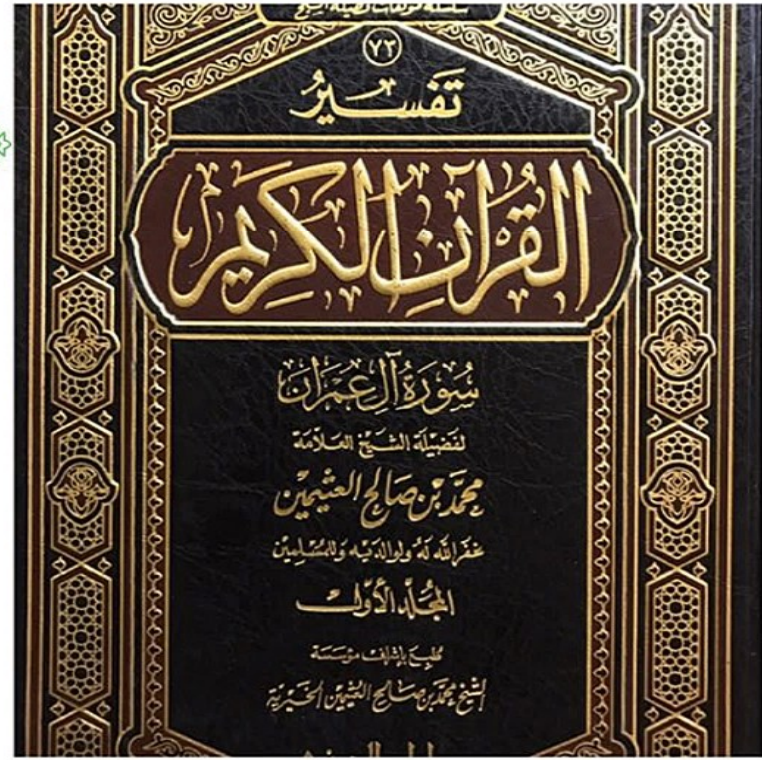 سلسلة مؤلفات فضيلة الشيخ
٧٣
تفسير
القرآن الكريم
سورة آل عمران
لفضيلة الشيخ العلامة
محمد بن صالح العثيمين
غفر الله له ولوالديه وللمسلمين
المجلد الأول
طبع بإشراف مؤسسة
الشيخ محمد بن صالح العثيمين الخيرية